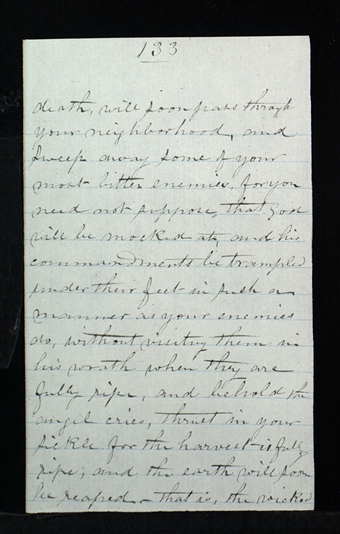 133
death, will soon pass through
your neighborhood, and
sweep away some of your
most bitter enemies, for you
need not suppose, that God
will be mocked at, and his
commandments be trampled
under their feet in such a
manner as your enemies
do, without visiting them in
his wrath when they are
fully ripe, and behold the
angel cries, thrust in your
sickle for the harvest is fully
ripe; and the earth will soon
be reaped - that is, the wicked